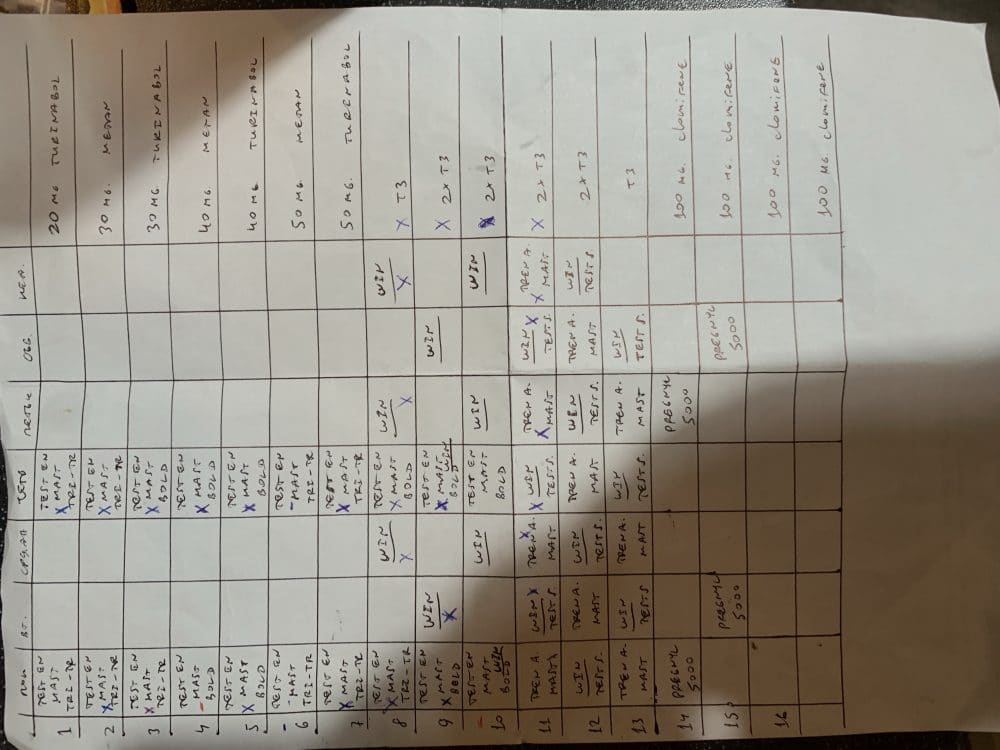 ПОН ВТ. СРЯДА ЧЕТВ ПЕТЪК СЪБ. НЕД.
1
TEST EN
MAST
TRI-TR
TEST EN
X MAST
TRI-TR
20 MG TURINABOL
2
TEST EN
X MAST
TRI-TR
TEST EN
X MAST
TRI-TR
30 MG. METAN
3
TEST EN
X MAST
TRI-TR
TEST EN
X MAST
BOLD
30 MG. TURINABOL
4
TEST EN
- MAST
BOLD
TEST EN
X MAST
BOLD
40 MG. METAN
5
TEST EN
X MAST
BOLD
TEST EN
X MAST
BOLD
40 MG TURINABOL
6
TEST EN
- MAST
TRI-TR
TEST EN
- MAST
TRI-TR
50 MG. METAN
7
TEST EN
X MAST
TRI-TR
TEST EN
X MAST
TRI-TR
50 MG. TURENABOL
8
TEST EN
X MAST
TRI-TR
WIN
X
TEST EN
X MAST
BOLD
WIN
X
WIN
X
X T3
9
TEST EN
X MAST
BOLD
WIN
X
TEST EN
X MAST
BOLD WIN
WIN
X 2X T3
10
TEST EN
MAST
BOLD WIN
WIN
TEST EN
MAST
BOLD
WIN
WIN
X 2X T3
11
TREN A.
MAST
WIN X
TEST S.
TREN A. X
MAST
X WIN
TEST S.
TREN A.
X MAST
WIN X
TEST S.
TREN A.
X MAST
X 2X T3
12
WIN
TEST S.
TREN A.
MAST
WIN
TEST S.
TREN A.
MAST
WIN
TEST S.
TREN A.
MAST
WIN
TEST S.
2X T3
13
TREN A.
MAST
WIN
TEST S
TREN A.
MAST
WIN
TEST S.
TREN A.
MAST
WIN
TEST S.
T3
14
PREGNYL
5000
PREGNYL
5000
100 MG. clomifene
15
PREGNYL
5000
PREGNYL
5000
100 MG. clomifene
16
100 MG. clomifene
100 MG. clomifene